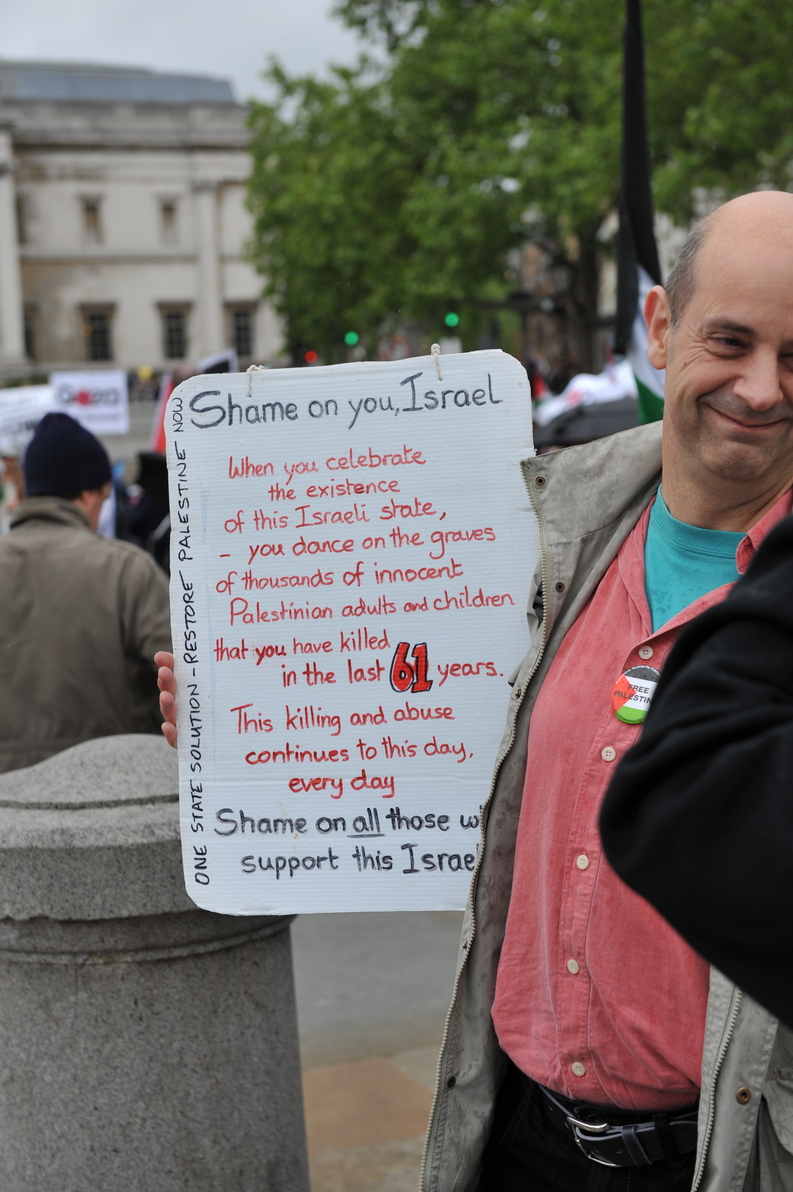 Shame on you, Israel
When you celebrate
the existence
of this Israeli state,
- you dance on the graves
of thousands of innocent
Palestinian adults and children
that you have killed
in the last 61 years.
This killing and abuse
continues to this day,
every day
Shame on all those w
support this Israe
ONE STATE SOLUTION - RESTORE PALESTINE NOW
FREE
PALESTIN
Gaza